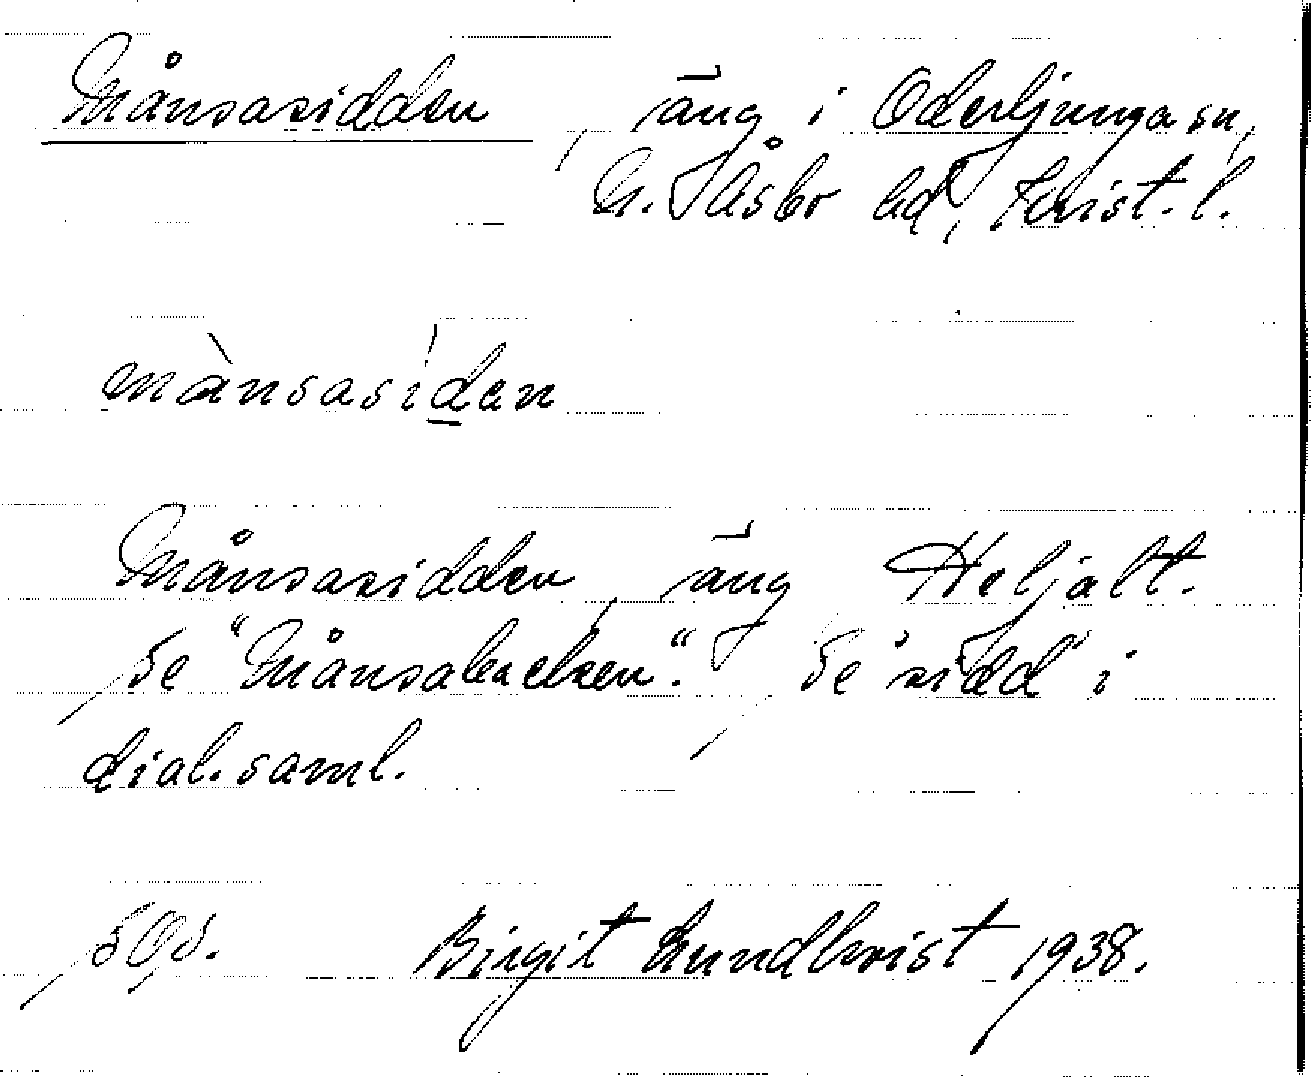 Månsasidden, äng i Oderljunga sn,
N. Åsbo hd, Krist. l.
mànsasíden
Månsasidden, äng Heljalt.
Se "Månsabacken". Se 'sidd' i
dial. saml.
Birgit Lundkvist 1938.